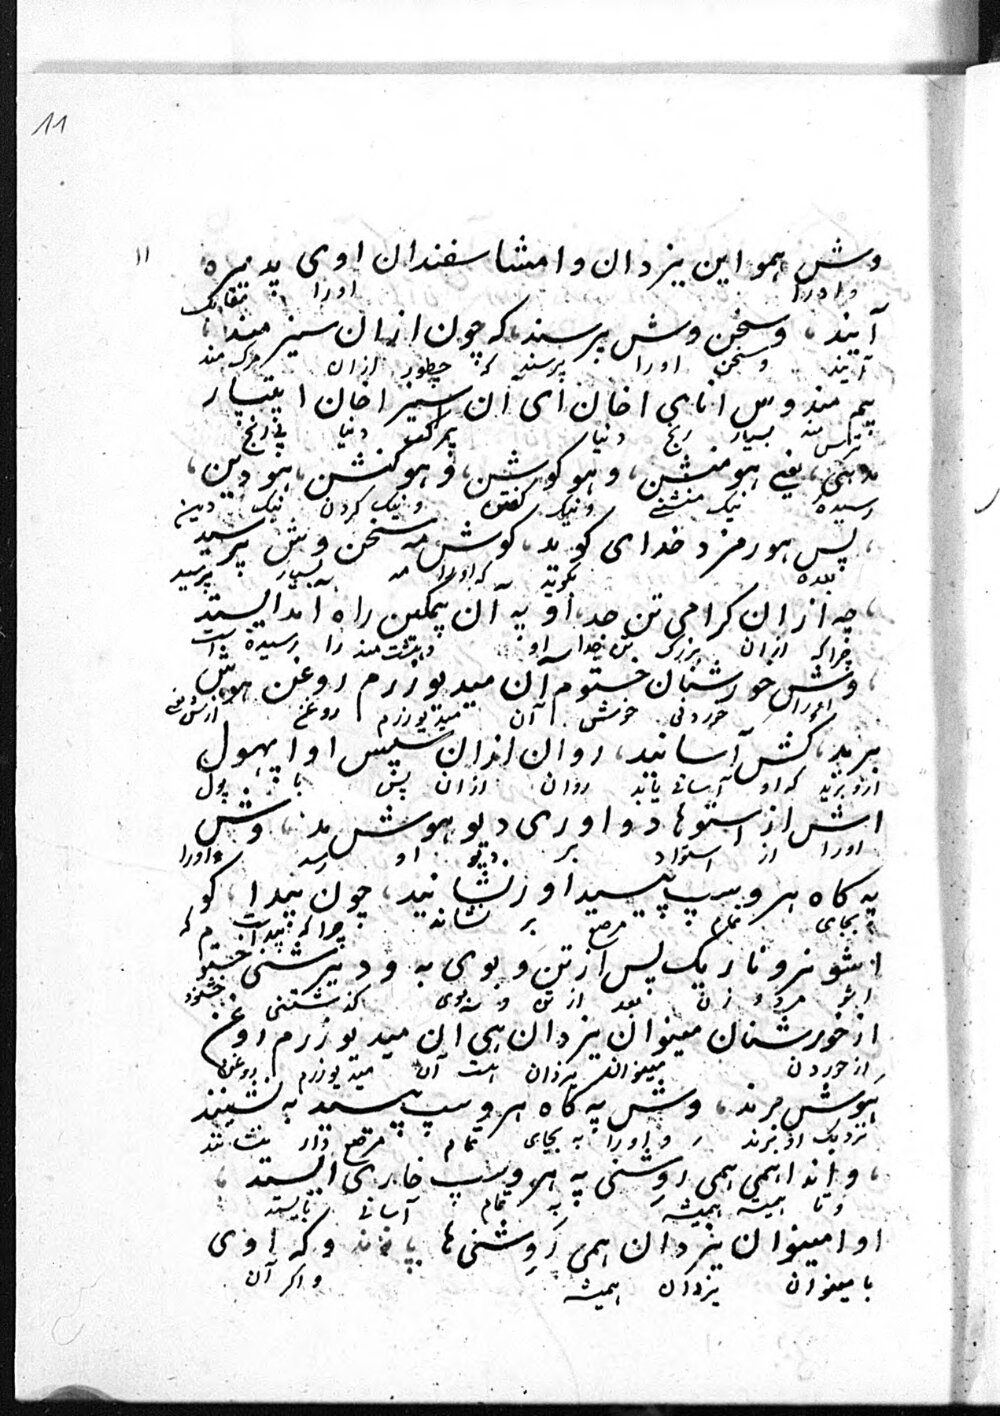 11
۱۱
وش همو این یزدان و امشاسفندان اوی پدیره
و اورا اورا
آیند، و سخن وش پرسند، که چون از ان سیزمند،
آیند و سخن اورا پرسند که چطور ازان مرک مند
پیم مند وس انای اخان ای آن سیز اخان ایتپار
ترس مند بسیار رنج دنیا مرک دنیا بی رنج
مدهی، یعنی هومنشن، و هوکوشن، و هوکنشن، هودین،
رسیده نیک منشنے و نیک گفتن و نیک کردن نیک دین
، پس هورمزد خدای کوید، کوش مه سخن وش پرسید
بعده بگوید که اورا مه بسیار پرسید
، چه از ان کرامی تن جد، او په آن پیمکین راه آمد ایستد
چراکه ازان بزرک تن جدا او دهشت مند را رسیده است
، وش خورشنان ختوم آن میدیوزرم روغن هوش
اورا خوردنی خوش آن میدیوزرم روغن
برند، کش آسانید، روان ازان سپس او اپهول
ازو برند که او آسانی یابد روان ازان پس با پول
اش از استوهاد و اوری دیو هوش مد، وش
اورا از استواد بر دیو او رسد و اورا
په کاه هرو سپ پیسید او رنشانید، چون پیدا، کو
بجای تمام مرصع بر نشاند چراکه پیدا است که
اشو نر و ناریک پس از تن و بوی به ودیرشنی
اشو مرد و زن بعد از تن و بوی گذشتنی
از خورشنان مینوان یزدان هی ان میدیوزرم روغن
از خوردن مینوان یزدان است آن میدیوزرم روغن
هوش برند، وش په کاه هرو سپ پیسید به نشینند
نزدیک او برند و اورا به بجای تمام مرصع دار بنشانند
، و اندا همی همی روشنی په هرویسپ خاری ایستد،
و تا همیشه همیشه به تمام آسانی بایستد
او امینوان یزدان همی روشنی ها پا و که اوی
با مینوان یزدان همیشه و اکر آن